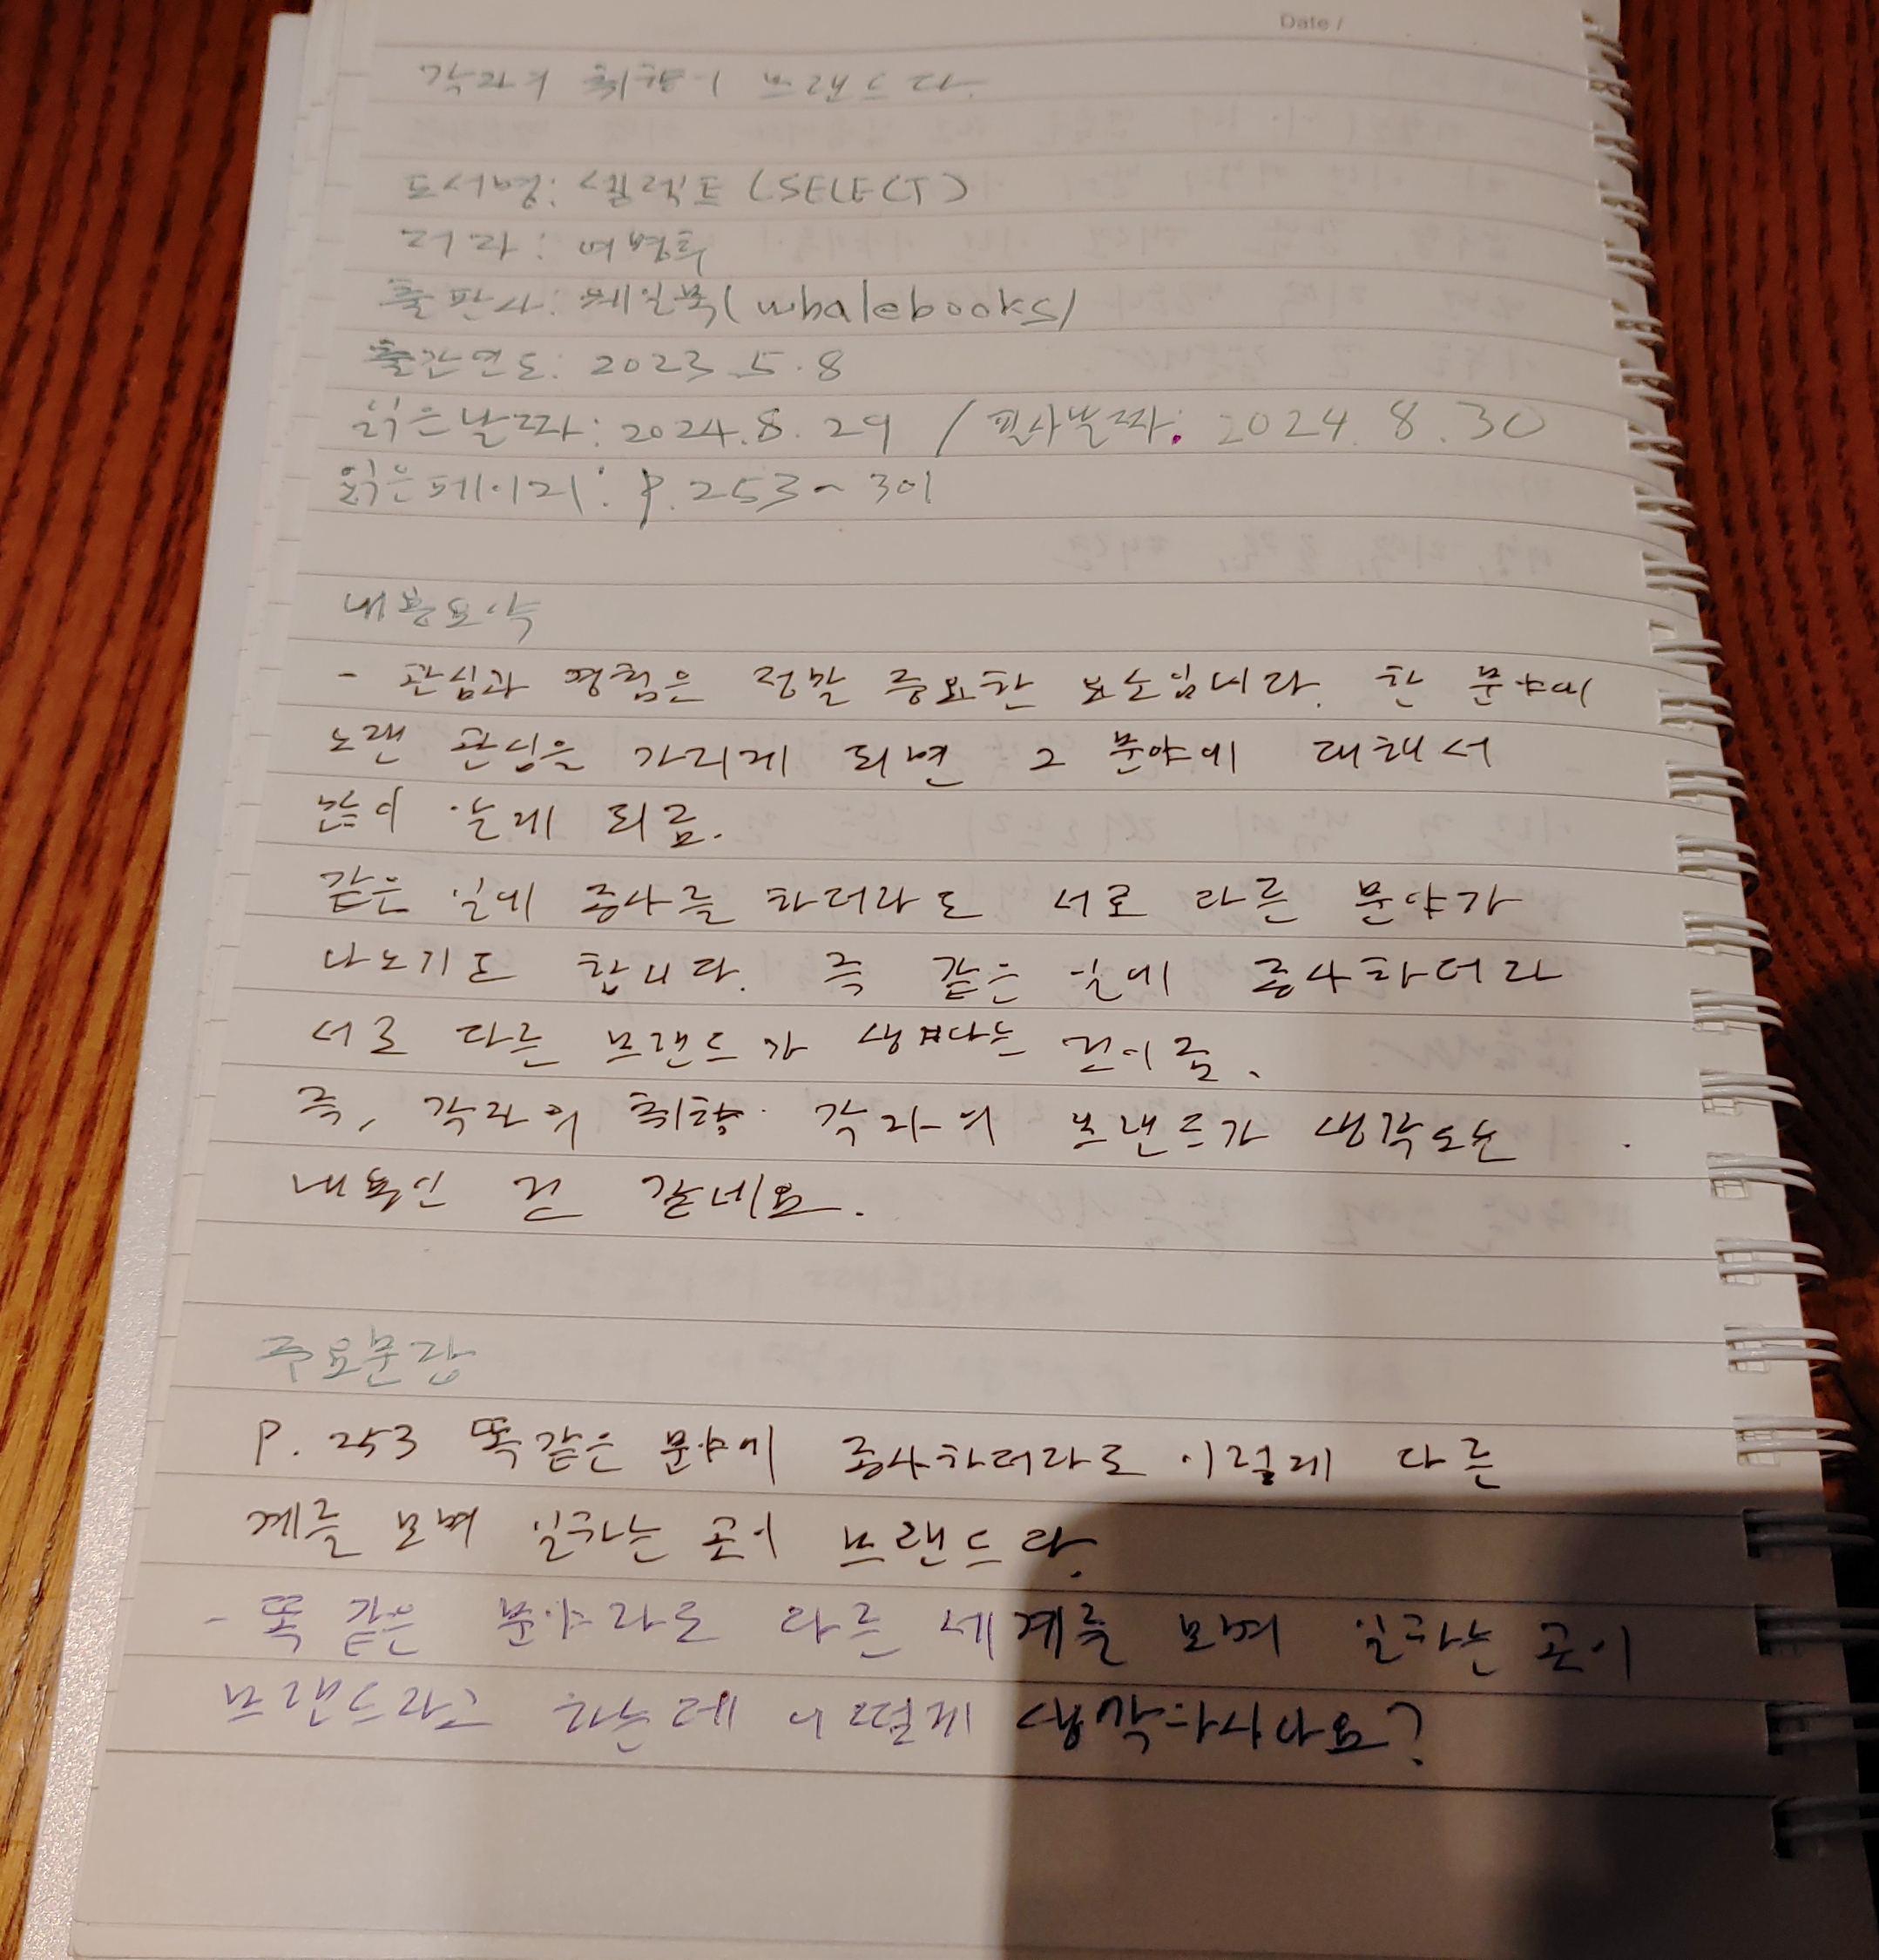 Date /
각자의 취향이 브랜드다.
도서명: 셀렉트 (SELECT)
저자: 여병희
출판사: 웨일북(whalebooks)
출간연도: 2023.5.8
읽은날짜: 2024.8.29 / 필사날짜: 2024.8.30
읽은페이지: P.253~301
내용요약
- 관심과 경험은 정말 중요한 요소입니다. 한 분야에
오랜 관심을 가지게 되면 그 분야에 대해서
많이 알게 되죠.
같은 일에 종사를 하더라도 서로 다른 분야가
나뉘기도 합니다. 즉 같은 일에 종사하더라
서로 다른 브랜드가 생긴다는 것이죠.
즉, 각자의 취향 각자의 브랜드가 생각나는
내용인 것 같네요.
주요문장
P. 253 똑같은 분야에 종사하더라도 이렇게 다른
계를 보며 일하는 곳이 브랜드다.
- 똑 같은 분야라도 다른 세계를 보며 일하는 곳이
브랜드라고 하는데 어떻게 생각하시나요?